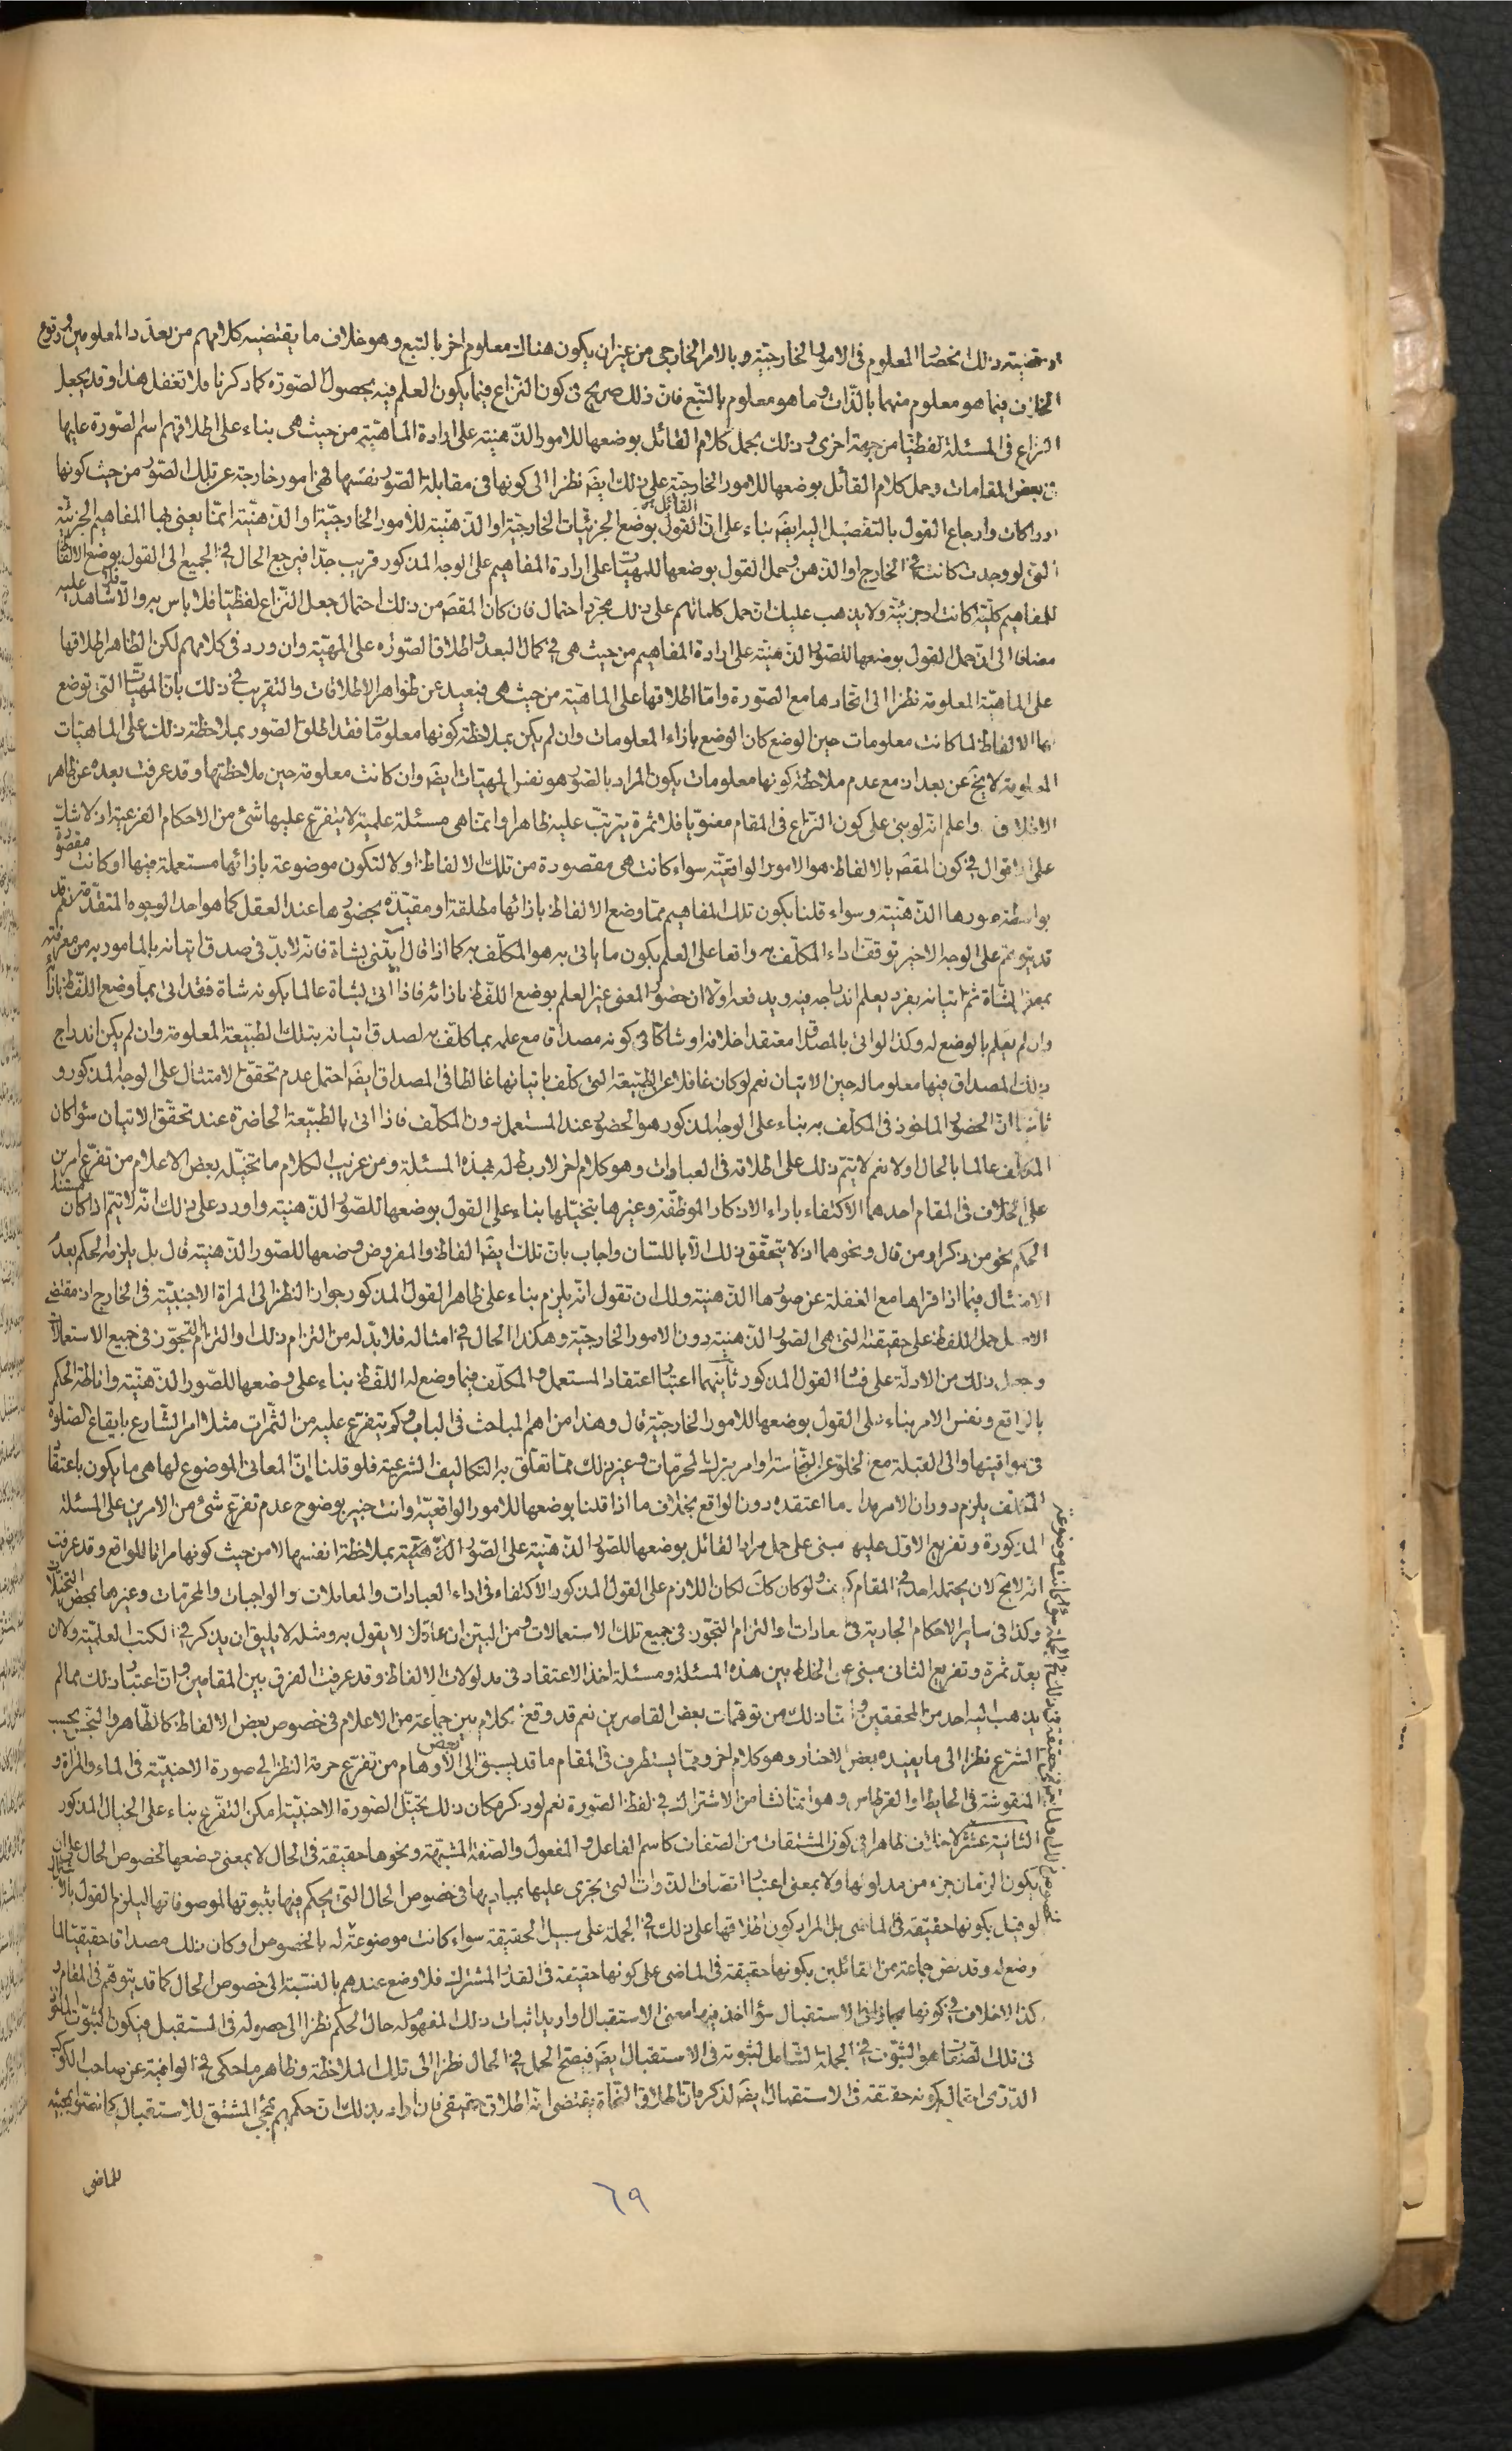 وقضيته ذلك انحصار المعلوم فى الامور الخارجيّة وبالامر الخارجى من غير ان يكون هناك معلوم اخر بالتبع وهو خلاف ما يقتضيه كلامهم من تعدّد المعلومين ووقوع
الخلاف فيما هو معلوم منهما بالذّات وما هو معلوم بالتّبع فان ذلك صريح فى كون النّزاع فيما يكون العلم فيه بحصول الصّورة كما ذكرنا فلا تغفل هذا وقد يجعل
النزاع فى المسئلة لفظيّا من جهة اخرى وذلك بحمل كلام القائل بوضعها للامور الذّهنيّة على ارادة الماهيّة من حيث هى بناء على اطلاقهم اسم الصّورة عليها
فى بعض المقامات وحمل كلام القائل بوضعها للامور الخارجيّة على ذلك ايضَ نظرا الى كونها فى مقابلة الصّور نفسها فهى امور خارجة عن تلك الصّور من حيث كونها
ادراكات وارجاع القول بالتفصيل اليه ايضَ بناء على انّ القول القائل بوضع الجزئيّات الخارجيّة او الذّهنيّة للامور الخارجيّة او الذّهنيّة انّما يعنى بها المفاهيم الجزئيّة
الّتى لو وجدت كانت فى الخارج او الذّهن وحمل القول بوضعها للمهيّات على ارادة المفاهيم على الوجه المذكور قريب جدّا فيرجع الحال فى الجميع الى القول بوضع الالفاظ
للمفاهيم كلّية كانت او جزئيّة ولا يذهب عليك ان حمل كلماتهم على ذلك مجرّد احتمال فان كان المقصَ من ذلك احتمال جعل النّزاع لفظيّا فلا باس به والّا فلا شاهد عليه
مضافا الى انّ حمل القول بوضعها للصّور الذّهنيّة على ارادة المفاهيم من حيث هى فى كمال البعد واطلاق الصّورة على المهيّة وان ورد فى كلامهم لكن الظاهر اطلاقها
على الماهيّة المعلومة نظرا الى اتّحادها مع الصّورة وامّا اطلاقها على الماهيّة من حيث هى فبعيد عن ظواهر الاطلاقات والتقريب فى ذلك بانّ المهيّات الّتى توضع
بها الالفاظ لما كانت معلومات حين الوضع كان الوضع بازاء المعلومات وان لم يكن بملاحظة كونها معلومات فقد اطلق الصّور بملاحظة ذلك على الماهيّات
المعلومة لا يخَ عن بعد اذ مع عدم ملاحظة كونها معلومات يكون المراد بالصّور هو نفس المهيّات ايضَ وان كانت معلومة حين ملاحظتها وقد عرفت بعده عن ظاهر
الاطلاق واعلم انّه لو بنى على كون النّزاع فى المقام معنويّا فلا ثمرة يترتّب عليه ظاهرا وانّما هى مسئلة علميّة لا يتفرّع عليها شئ من الاحكام الفرعيّة اذ لا شكّ
على الاقوال فى كون المقصَ بالالفاظ هو الامور الواقعيّة سواء كانت هى مقصورة من تلك الالفاظ اولا لتكون موضوعة بازائها مستعملة فيها او كانت مقصورة
بواسطة صورها الذّهنيّة وسواء قلنا بكون تلك المفاهيم ممّا وضع الالفاظ بازائها مطلقة او مقيّدة بحضورها عند العقل كما هو احد الوجوه المتقدّمة نعم قد
قد يتوهّم على الوجه الاخير توقف اداء المكلّف به واقعا على العلم بكون ما ياتى به هو المكلّف به كما اذا قال ايتنى بشاة فانّه لا بدّ فى صدق اتيانه بالمامور به من معرفة
بمعنى الشاة ثمّ اتيانه بفرد يعلم اندراجه فيه ويدفعه اولا ان حضور المعنى غير العلم بوضع اللّفظ بازائه فاذا اتى بشاة عالما بكونه شاة فقد اتى بما وضع اللّفظ بازائه
وان لم يعلم بالوضع له وكذا لو اتى بالمصداق معتقدا خلافه او شاكّا فى كونه مصداق مع علمه بما كلّف به لصدق اتيانه بتلك الطّبيعة المعلومة وان لم يكن اندراج
ذلك المصداق فيها معلوما له حين الاتيان نعم لو كان غافلا عن الطّبيعة الّتى كلّف باتيانها غالطا فى المصداق ايضَ احتمل عدم تحقّق الامتثال على الوجه المذكور و
ثانيا انّ الحضور الماخوذ فى المكلّف به بناء على الوجه المذكور هو الحضور عند المستعمل دون المكلّف فاذا اتى بالطّبيعة الحاضرة عند تحقّق الاتيان سواء كان
المكلّف عالما بالحال اولا نعم لا يتمّ ذلك على اطلاقه فى العبادات وهو كلام اخر لا ربط له بهذه المسئلة ومن غريب الكلام ما تخيّله بعض الاعلام من تفرّع امرين
على الخلاف فى المقام احدهما الاكتفاء باداء الاذكار الموظّفة وغيرها بتخيّلها بناء على القول بوضعها للصّور الذّهنيّة واورد على ذلك انّه لا يتمّ اذا كان مستند
الحكم نحو من ذكر او من قال ونحوهما اذ لا يتحقّق ذلك الّا باللّسان واجاب بانّ تلك ايضَ الفاظ والمفروض وضعها للصّور الذّهنيّة قال بل يلزمه الحكم بعدم
الامتثال فيما اذا قراها مع الغفلة عن صورها الذّهنيّة ولك ان تقول انّه يلزم بناء على ظاهر القول المذكور جواز النّظر الى المراة الاجنبيّة فى الخارج اذ مقتضى
الاصل حمل اللّفظ على حقيقته الّتى هى الصّور الذّهنيّة دون الامور الخارجيّة وهكذا الحال فى امثاله فلا بدّ له من التزام ذلك والتزام التجوّز فى جميع الاستعمالات
وجعل ذلك من الادلّة على فساد القول المذكور ثانيهما اعتبار اعتقاد المستعمل والمكلّف فيما وضع له اللّفظ بناء على وضعها للصّور الذّهنيّة واناطة الحكم
بالواقع ونفس الامر بناء على القول بوضعها للامور الخارجيّة قال وهذا من اهمّ المباحث فى الباب وكم يتفرّع عليه من الثّمرات مثلا امر الشّارع بايقاع الصّلوة
فى مواقيتها والى القبلة مع الخلوّ عن النّجاسة او امر بترك المحرّمات وغير ذلك ممّا تعلّق به التّكاليف الشرعيّة فلو قلنا انّ المعانى الموضوع لها هى ما يكون باعتقاد
المكلّف يلزم دوران الامر مدار ما اعتقده دون الواقع بخلاف ما اذا قلنا بوضعها للامور الواقعيّة وانت خبير بوضوح عدم تفرّع شئ من الامرين على المسئلة
المذكورة وتفريع الاوّل عليه مبنى على حمل مراد القائل بوضعها للصّور الذّهنيّة على الصّور الذّهنيّة بملاحظة انفسها لا من حيث كونها مراتا للواقع وقد عرفت
انّه لا مجَ لان يحتمله احد فى المقام كيف ولو كان كذَ لكان اللازم على القول المذكور الاكتفاء فى اداء العبادات والمعاملات والواجبات والمحرمات وغيرها بمحض التخيّلات
وكذا فى ساير الاحكام الجارية فى العادات او التزام التجوّز فى جميع تلك الاستعمالات ومن البيّن ان عاقلا لا يقول به ومثله لا يليق ان يذكر فى الكتب العلميّة ولا ان
يعدّ ثمرة وتفريع الثانى مبنى على الخلط بين هذه المسئلة ومسئلة اخذ الاعتقاد فى مدلولات الالفاظ وقد عرفت الفرق بين المقامين وانّ اعتبار ذلك ممّا لم
يذهب اليه احد من المحققين وانّما ذلك من توهّمات بعض القاصرين نعم قد وقع كلام بين جماعة من الاعلام فى خصوص بعض الالفاظ كالطّاهر والنّجس بحسب
الشّرع نظرا الى ما يفيده بعض الاخبار وهو كلام اخر وممّا يستطرف فى المقام ما قد يسبق الى بعض الاوهام من تفرّع حرمة النّظر الى صورة الاجنبيّة فى الماء والمراة و
المنقوشة فى الحايط او القرطاس وهو انّما نشا من الاشتراك فى لفظ الصّورة نعم لو ذكر مكان ذلك تخيّل الصّورة الاجنبيّة امكن التفرّع بناء على الخيال المذكور
الثانية عشر لا خلاف ظاهرا فى كون المشتقات من الصّفات كاسم الفاعل والمفعول والصّفة المشبّهة ونحوها حقيقة فى الحال لا بمعنى وضعها لخصوص الحال على ان
يكون الزّمان جزء من مدلولها ولا بمعنى اعتبار اتصاف الذّوات الّتى يجرى عليها بمباديها فى خصوص الحال الّتى يحكم فيها بثبوتها لموصوفاتها ليلزم القول بالاشتراك
لو قيل بكونها حقيقة فى الماضى بل المراد كون اطلاقها على ذلك فى الجملة على سبيل الحقيقة سواء كانت موضوعة له بالخصوص او كان ذلك مصداقا حقيقيّا لما
وضع له وقد نصّ جماعة من القائلين بكونها حقيقة فى الماضى على كونها حقيقة فى القدر المشترك فلا وضع عندهم بالنّسبة الى خصوص الحال كما قد يتوهّم فى المقام و
كذا لا خلاف فى كونها مجازا فى الاستقبال سواء اخذ فيها معنى الاستقبال او اريد اثبات ذلك المفهوم له حال الحكم نظرا الى حصوله فى المستقبل فيكون الثبوت
فى تلك الصّفات هو الثّبوت فى الجملة الشّامل لثبوته فى الاستقبال ايضَ فيصحّ الحمل فى الحال نظرا الى تلك الملاحظة وظاهر ما حكى فى الوافية عن صاحب الكوكب
الدّرّى احتمال كونه حقيقة فى الاستقبال ايضَ لذكر انّ اطلاق النّحاة يقتضى انّه اطلاق حقيقى فان اراد بذلك ان حكمهم بمجئ المشتق للاستقبال كما نصّوا بمجيئه
للماضى
٦٩